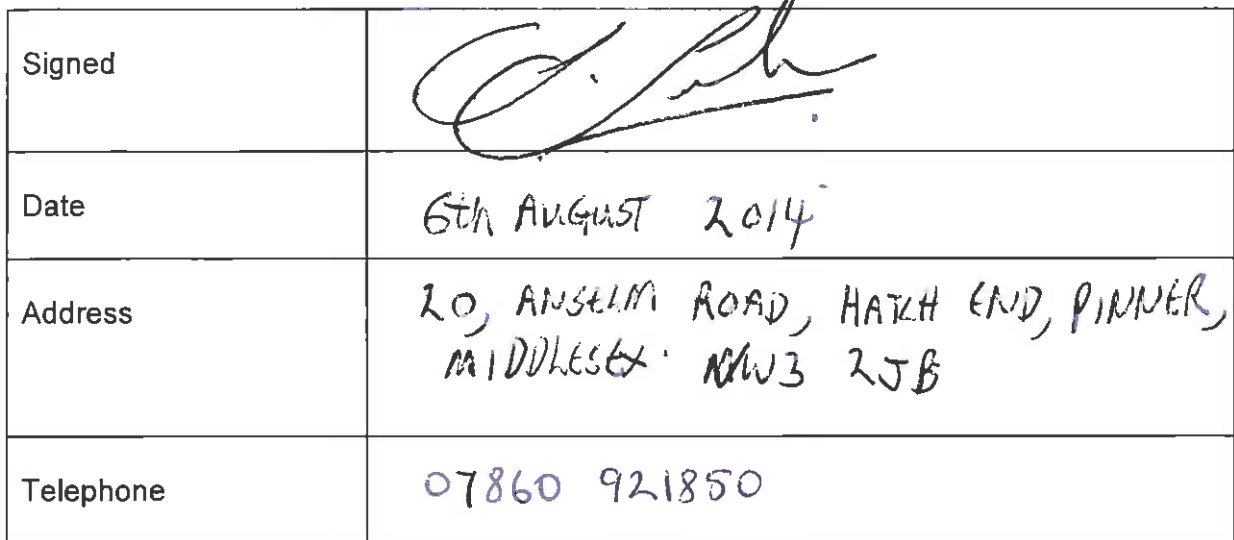 Signed
Date 6th AUGUST 2014
Address 20, ANSELM ROAD, HATCH END, PINNER,
MIDDLESEX. 2JB
Telephone 07860 921850